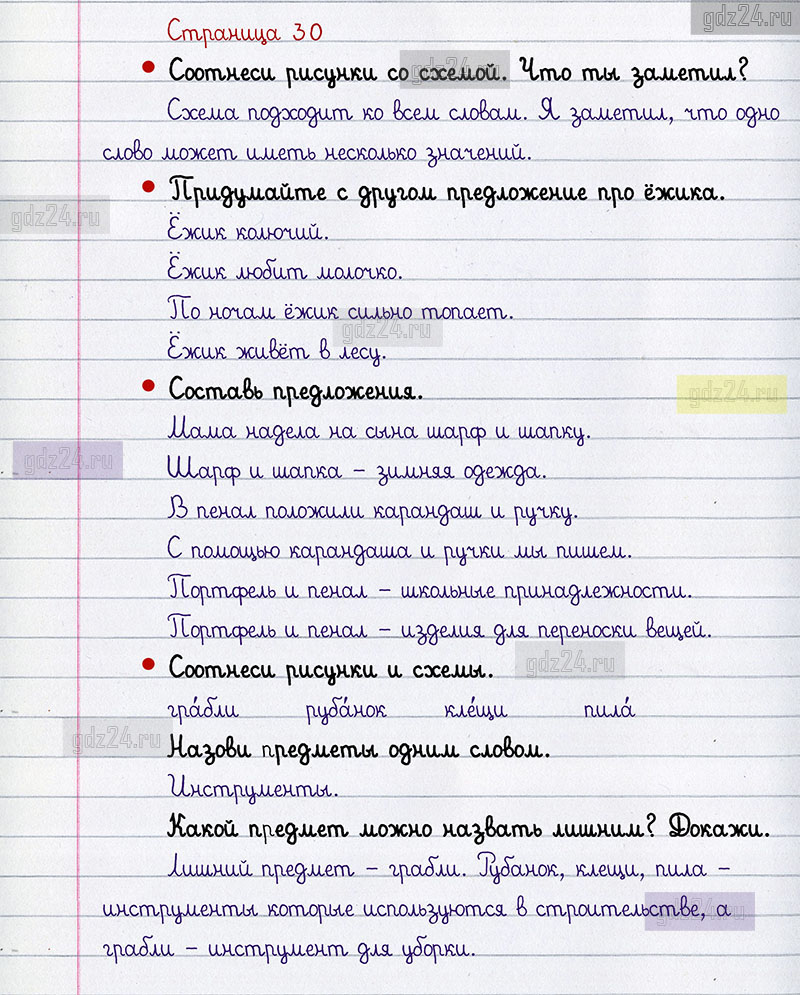 gdz24.ru
Страница 30
• Соотнеси рисунки со схемой. Что ты заметил?
gdz24.ru
Схема подходит ко всем словам. Я заметил, что одно
слово может иметь несколько значений.
• Придумайте с другом предложение про ёжика.
gdz24.ru
Ёжик колючий.
Ёжик любит молочко.
По ночам ёжик сильно топает.
gdz24.ru
Ёжик живёт в лесу.
• Составь предложения.
gdz24.ru
Мама надела на сына шарф и шапку.
gdz24.ru
Шарф и шапка – зимняя одежда.
В пенал положили карандаш и ручку.
С помощью карандаша и ручки мы пишем.
Портфель и пенал – школьные принадлежности.
Портфель и пенал – изделия для переноски вещей.
• Соотнеси рисунки и схемы.
gdz24.ru
гра́бли руба́нок кле́щи пила́
gdz24.ru
Назови предметы одним словом.
Инструменты.
Какой предмет можно назвать лишним? Докажи.
Лишний предмет – грабли. Рубанок, клещи, пила –
инструменты которые используются в строительстве, а
gdz24.ru
грабли – инструмент для уборки.